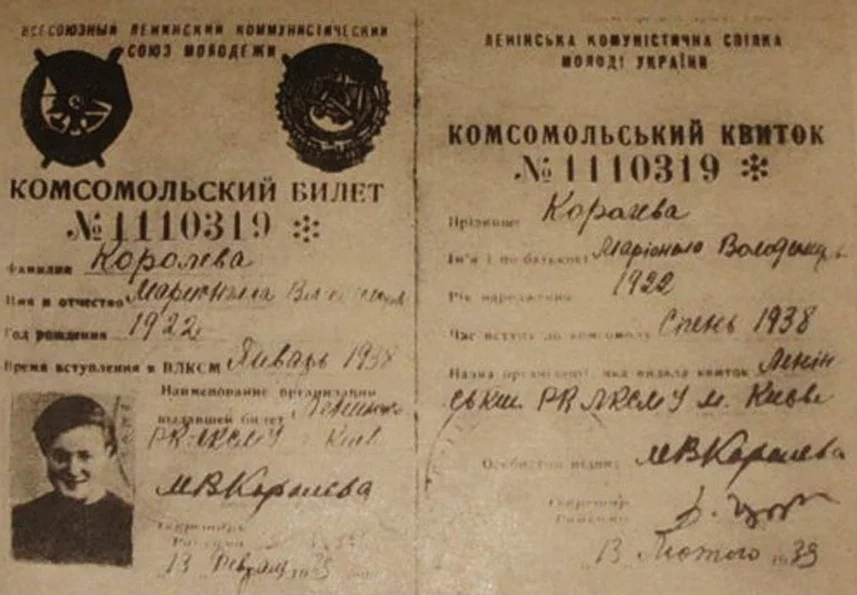 ВСЕСОЮЗНЫЙ ЛЕНИНСКИЙ КОММУНИСТИЧЕСКИЙ
СОЮЗ МОЛОДЕЖИ
КОМСОМОЛЬСКИЙ БИЛЕТ
№ 1110319
Фамилия Королева
Имя и отчество
Год рождения 1922
Время вступления в ВЛКСМ Январь 1938
Наименование организации
выдавшей билет
РК ЛКСМУ Киев
МВКоролева
13
ЛЕНІНСЬКА КОМУНІСТИЧНА СПІЛКА
МОЛОДІ УКРАЇНИ
КОМСОМОЛЬСЬКИЙ КВИТОК
№ 1110319
Прізвище Королева
Ім'я і по батькові
Рік народження 1922
Час вступу до комсомолу Січень 1938
Назва організації, яка видала квиток Ленін
ський РК ЛКСМУ м. Київ
Особистий підпис МВКоролева
Секретар
Райкому
13 Лютого 1939